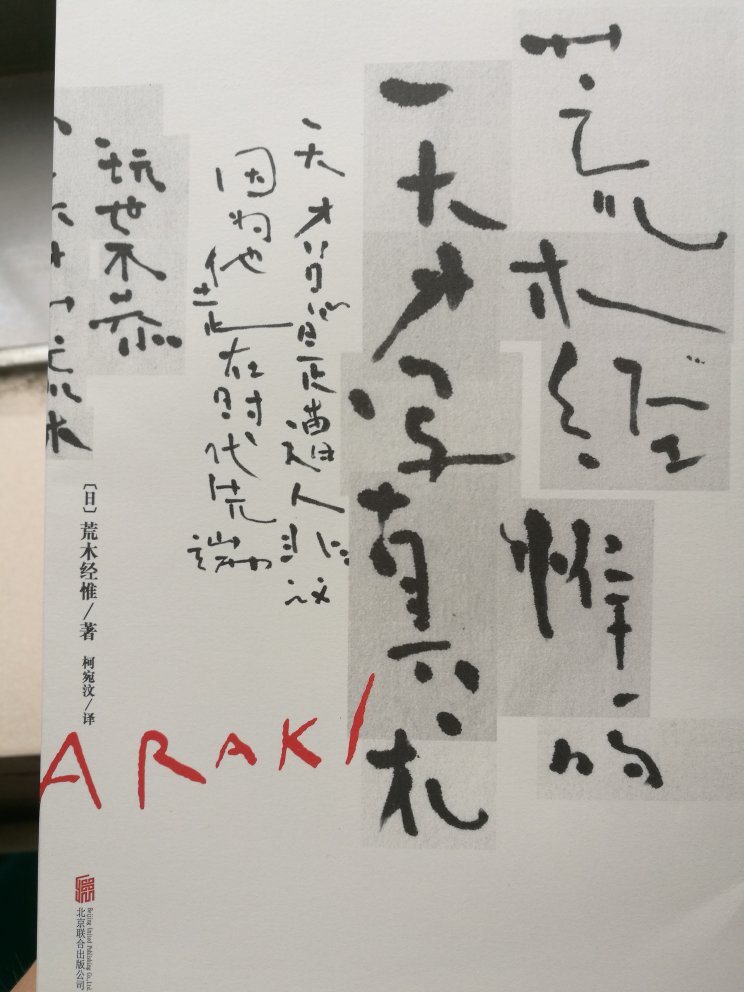 荒木经惟的
天才写真术
天才 人非议
因为他走在时代先端
玩世不恭
荒木
[日]荒木经惟/著
柯宛汶/译
ARAKI
北京联合出版公司
Beijing United Publishing Co.,Ltd.